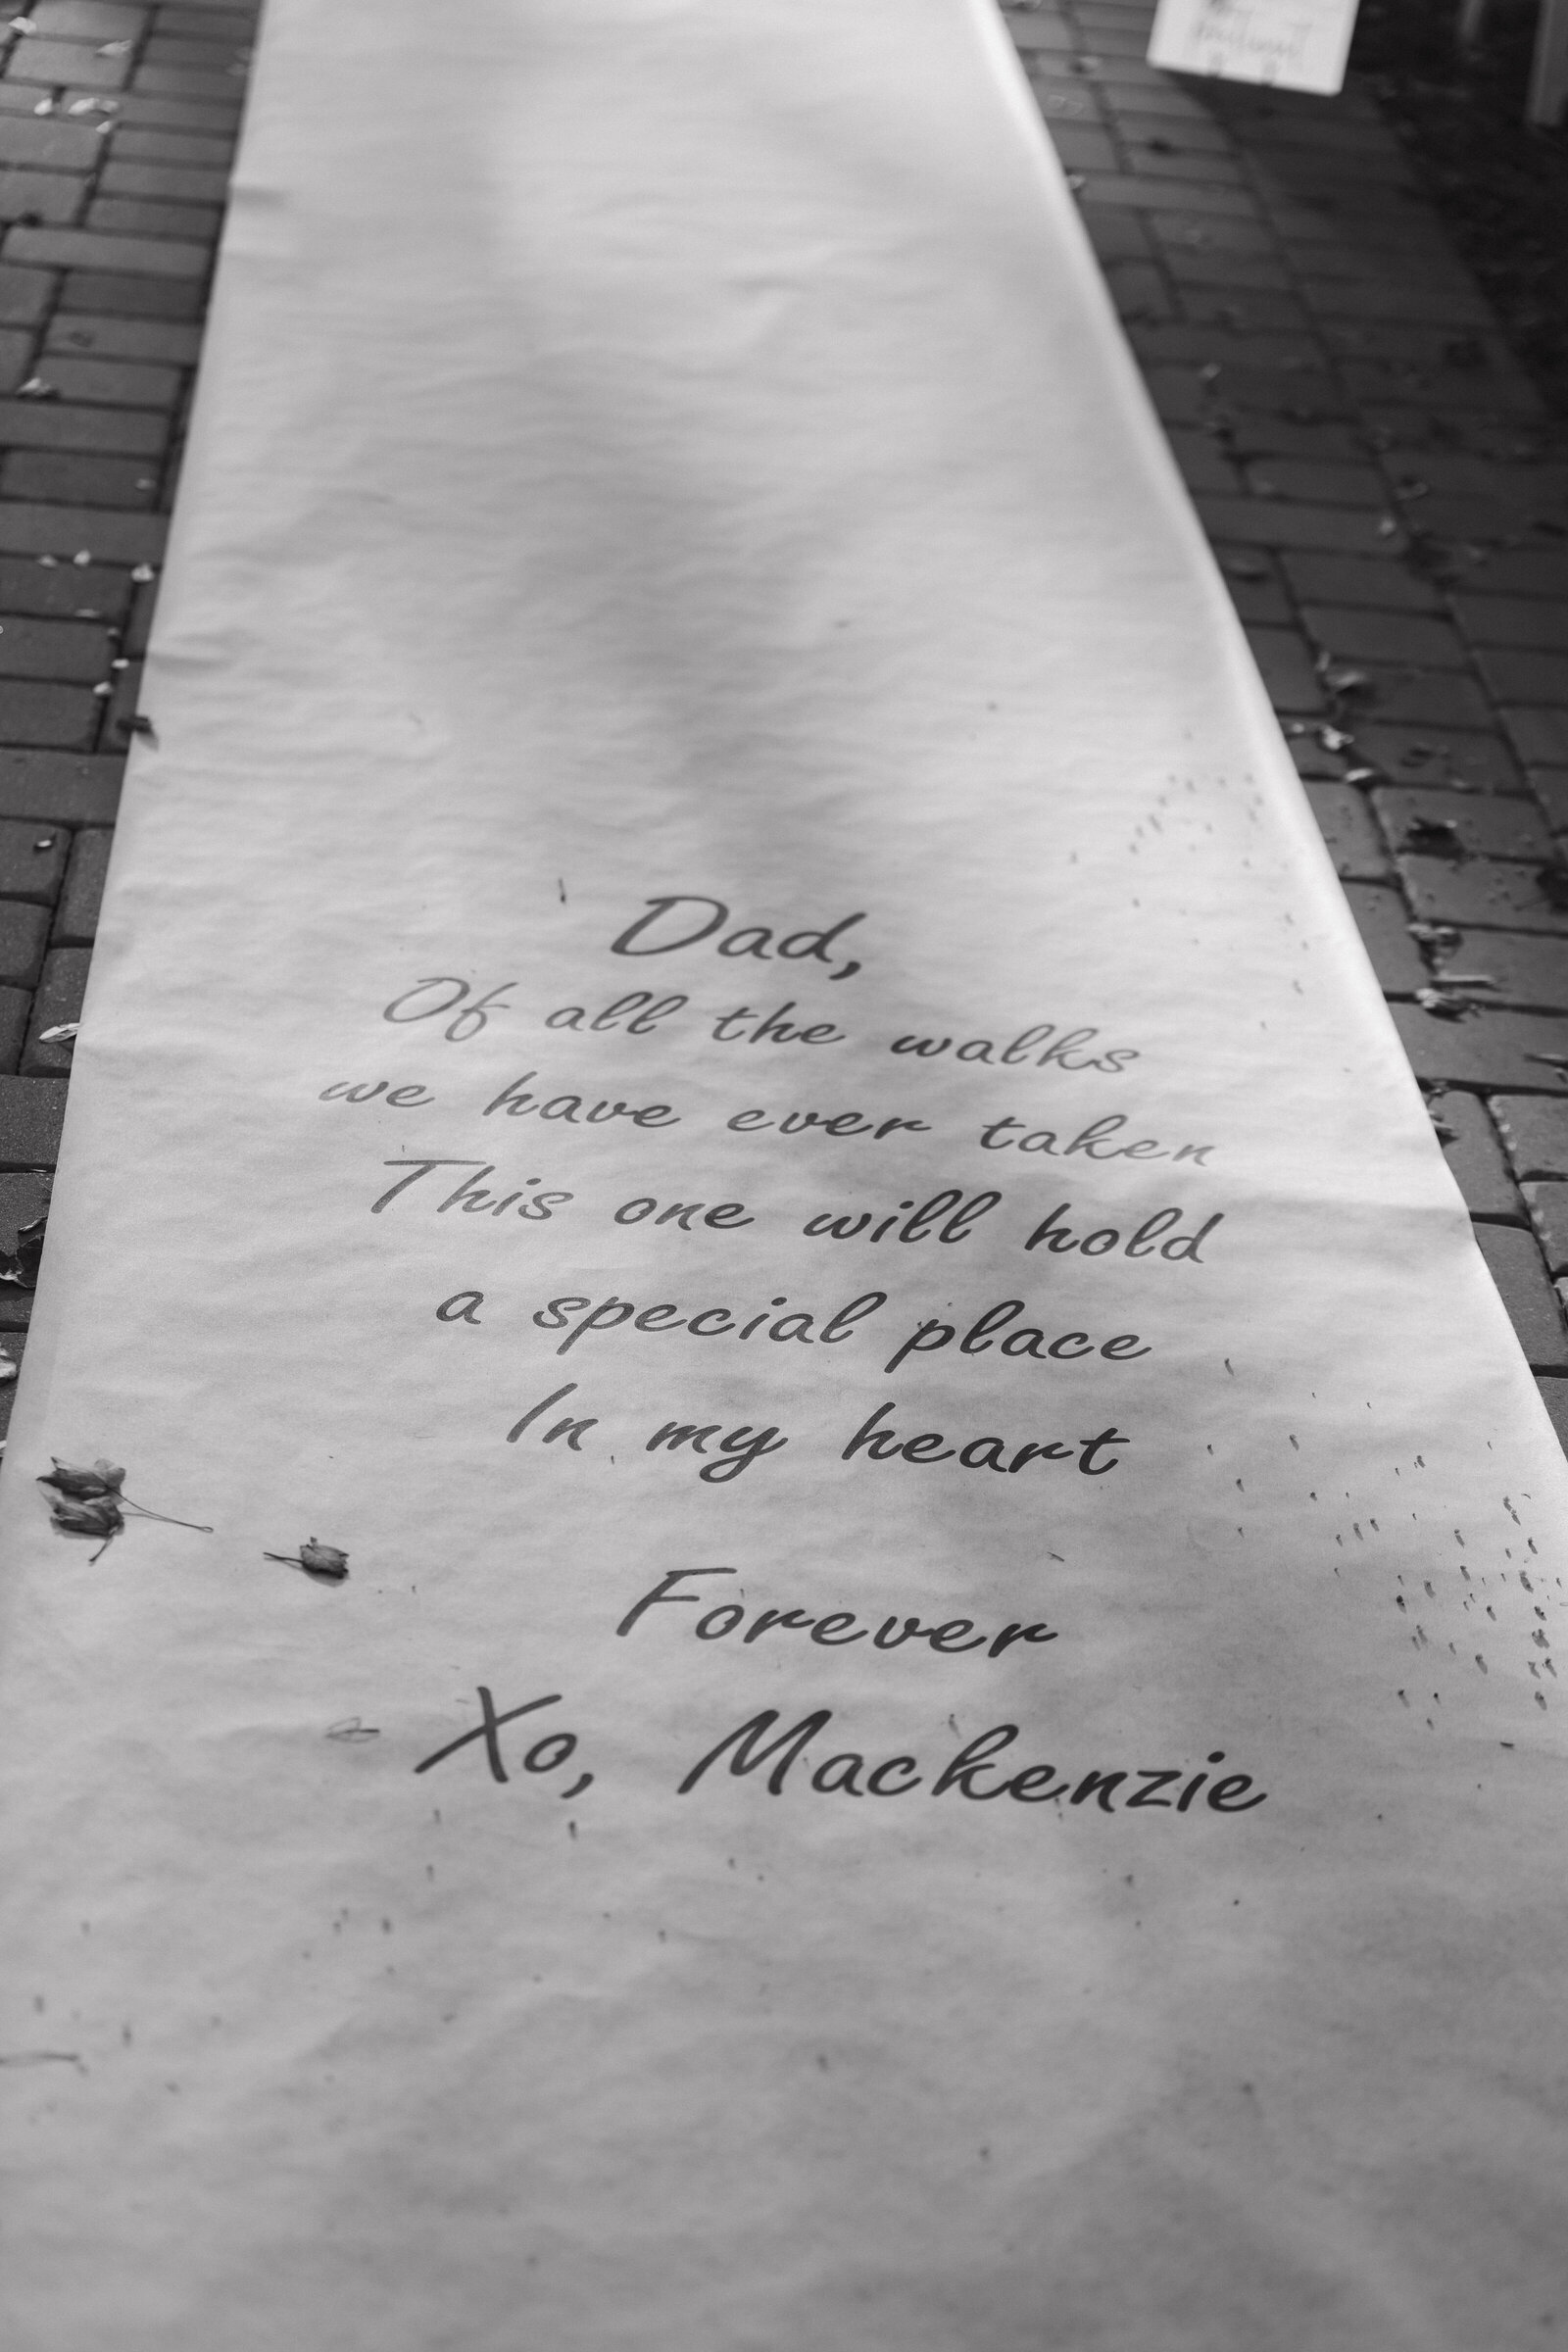 Dad,
Of all the walks
we have ever taken
This one will hold
a special place
In my heart
Forever
Xo, Mackenzie